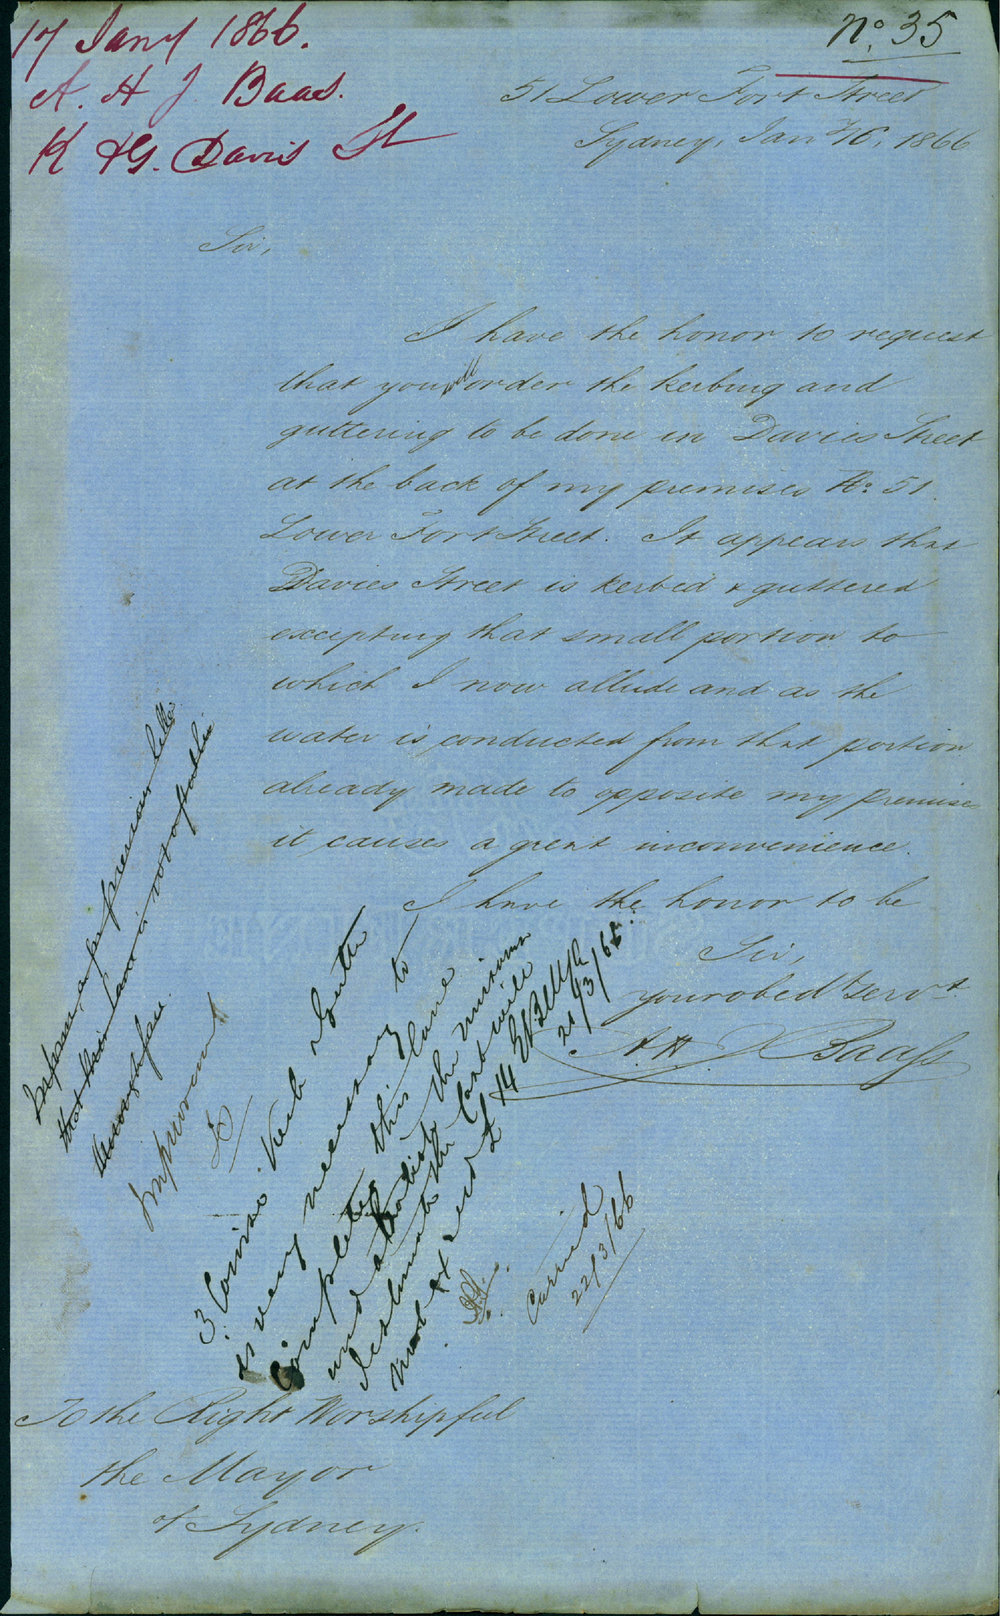 17 Jany 1866.
A. H. J. Baass.
K & G. Davis St
No. 35
51 Lower Fort Street
Sydney, Jan 16, 1866
Sir,
I have the honor to request
that you will order the kerbing and
guttering to be done in Davies Street
at the back of my premises No 51.
Lower Fort Street. It appears that
Davies Street is kerbed & guttered
excepting that small portion to
which I now allude and as the
water is conducted from that portion
already made to opposite my premise
it causes a great inconvenience.
I have the honor to be
Sir,
your obedt servt
A. H. J. Baass
Inform, as per previous letter
that this Lane is not a public
thoroughfare.
Improvement
3 Course Kerb & Gutter
is very necessary to
Complete this lane
and abolish the nuisance
Estimate the Cost will
not exceed £14
21/3/66.
Carried
22/3/66
To the Right Worshipful
the Mayor
of Sydney.